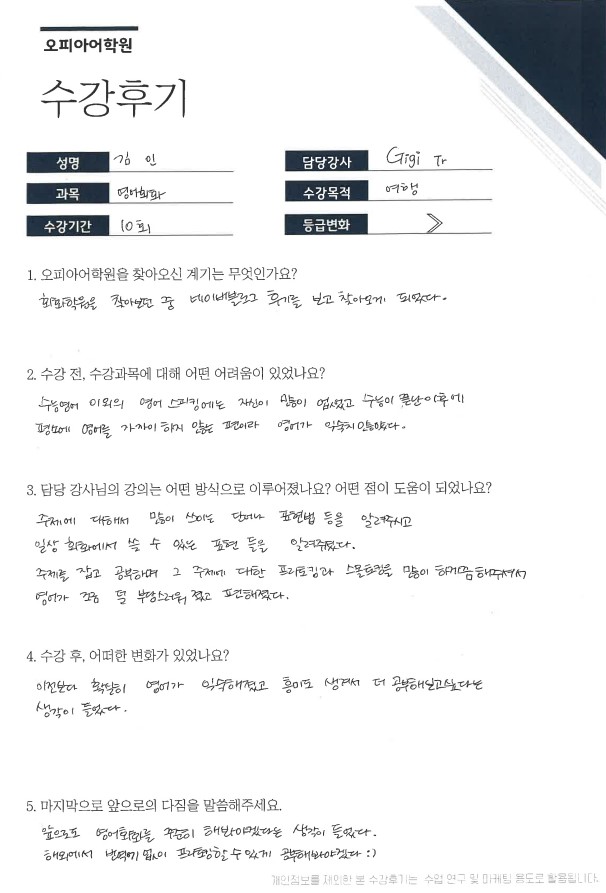 오피아어학원
수강후기
성명 김 인
담당강사 Gigi Tr
과목 영어회화
수강목적 여행
수강기간 10회
등급변화
1. 오피아어학원을 찾아오신 계기는 무엇인가요?
회화학원을 찾아보던 중 네이버블로그 후기를 보고 찾아오게 되었다.
2. 수강 전, 수강과목에 대해 어떤 어려움이 있었나요?
수능영어 이외의 영어 스피킹에는 자신이 많이 없었고 수능이 끝난 이후에
평소에 영어를 가까이 하지 않는 편이라 영어가 익숙치않았다.
3. 담당 강사님의 강의는 어떤 방식으로 이루어졌나요? 어떤 점이 도움이 되었나요?
주제에 대해서 많이 쓰이는 단어나 표현법 등을 알려주시고
일상 회화에서 쓸 수 있는 표현 들을 알려주셨다.
주제를 잡고 공부하며 그 주제에 대한 프리토킹과 스몰토킹을 많이 하게끔 해주셔서
영어가 조금 덜 부담스러워 졌고 편해졌다.
4. 수강 후, 어떠한 변화가 있었나요?
이전보다 확실히 영어가 익숙해졌고 흥미도 생겨서 더 공부해보고싶다는
생각이 들었다.
5. 마지막으로 앞으로의 다짐을 말씀해주세요.
앞으로도 영어회화를 꾸준히 해봐야겠다는 생각이 들었다.
해외에서 번역기 없이 프리토킹할 수 있게 공부해봐야겠다 :)
개인정보를 제외한 본 수강후기는 수업 연구 및 마케팅 용도로 활용됩니다.